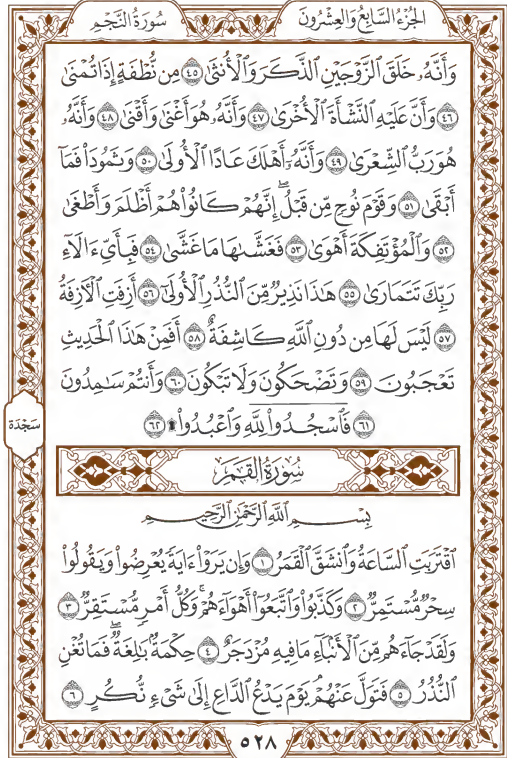 الجُزْءُ السَّابِعُ وَالعِشْرُونَ
سُورَةُ النَّجْمِ
وَأَنَّهُۥ خَلَقَ ٱلزَّوْجَيْنِ ٱلذَّكَرَ وَٱلْأُنثَىٰ ٤٥ مِن نُّطْفَةٍ إِذَا تُمْنَىٰ
٤٦ وَأَنَّ عَلَيْهِ ٱلنَّشْأَةَ ٱلْأُخْرَىٰ ٤٧ وَأَنَّهُۥ هُوَ أَغْنَىٰ وَأَقْنَىٰ ٤٨ وَأَنَّهُۥ
هُوَ رَبُّ ٱلشِّعْرَىٰ ٤٩ وَأَنَّهُۥٓ أَهْلَكَ عَادًا ٱلْأُولَىٰ ٥٠ وَثَمُودَا۟ فَمَآ
أَبْقَىٰ ٥١ وَقَوْمَ نُوحٍ مِّن قَبْلُ ۖ إِنَّهُمْ كَانُوا۟ هُمْ أَظْلَمَ وَأَطْغَىٰ
٥٢ وَٱلْمُؤْتَفِكَةَ أَهْوَىٰ ٥٣ فَغَشَّىٰهَا مَا غَشَّىٰ ٥٤ فَبِأَىِّ ءَالَآءِ
رَبِّكَ تَتَمَارَىٰ ٥٥ هَٰذَا نَذِيرٌ مِّنَ ٱلنُّذُرِ ٱلْأُولَىٰٓ ٥٦ أَزِفَتِ ٱلْأٓزِفَةُ
٥٧ لَيْسَ لَهَا مِن دُونِ ٱللَّهِ كَاشِفَةٌ ٥٨ أَفَمِنْ هَٰذَا ٱلْحَدِيثِ
تَعْجَبُونَ ٥٩ وَتَضْحَكُونَ وَلَا تَبْكُونَ ٦٠ وَأَنتُمْ سَٰمِدُونَ
٦١ فَٱسْجُدُوا۟ لِلَّهِ وَٱعْبُدُوا۟ ۩ ٦٢
سَجْدَة
سُورَةُ القَمَرِ
بِسْمِ ٱللَّهِ ٱلرَّحْمَٰنِ ٱلرَّحِيمِ
ٱقْتَرَبَتِ ٱلسَّاعَةُ وَٱنشَقَّ ٱلْقَمَرُ ١ وَإِن يَرَوْا۟ ءَايَةً يُعْرِضُوا۟ وَيَقُولُوا۟
سِحْرٌ مُّسْتَمِرٌّ ٢ وَكَذَّبُوا۟ وَٱتَّبَعُوٓا۟ أَهْوَآءَهُمْ ۚ وَكُلُّ أَمْرٍ مُّسْتَقِرٌّ ٣
وَلَقَدْ جَآءَهُم مِّنَ ٱلْأَنۢبَآءِ مَا فِيهِ مُزْدَجَرٌ ٤ حِكْمَةٌۢ بَٰلِغَةٌ ۖ فَمَا تُغْنِ
ٱلنُّذُرُ ٥ فَتَوَلَّ عَنْهُمْ ۘ يَوْمَ يَدْعُ ٱلدَّاعِ إِلَىٰ شَىْءٍ نُّكُرٍ ٦
٥٢٨